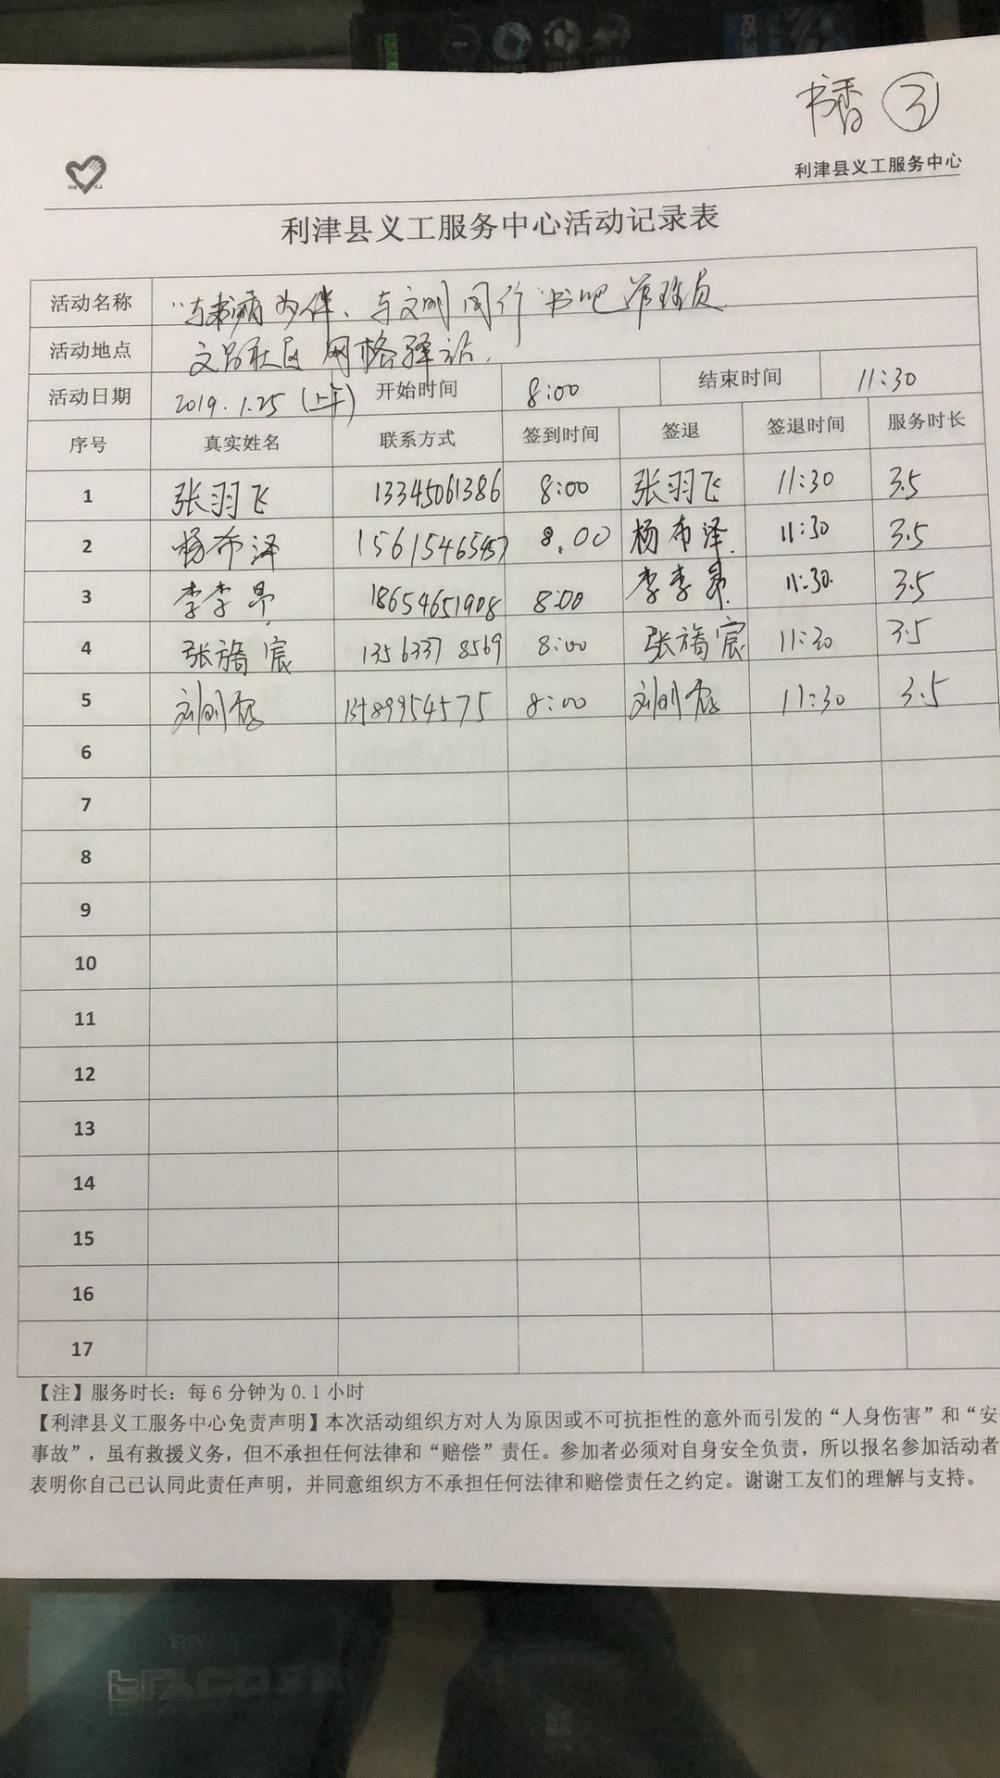 书香 ③
利津县义工服务中心
利津县义工服务中心活动记录表
活动名称 “与书为伴、与文明同行”书吧管理员
活动地点 文昌社区网格驿站.
活动日期 2019.1.25 (上午) 开始时间 8:00 结束时间 11:30
序号 真实姓名 联系方式 签到时间 签退 签退时间 服务时长
1 张羽飞 13345061386 8:00 张羽飞 11:30 3.5
2 杨布泽 8.00 杨布泽. 11:30 3.5
3 李李昂 18654651908 8:00 李李昂. 11:30. 3.5
4 张旖宸 13563378569 8:00 张旖宸 11:30 3.5
5 13489954575 8:00 11:30 3.5
6
7
8
9
10
11
12
13
14
15
16
17
【注】服务时长：每6分钟为0.1小时
【利津县义工服务中心免责声明】本次活动组织方对人为原因或不可抗拒性的意外而引发的“人身伤害”和“安
事故”，虽有救援义务，但不承担任何法律和“赔偿”责任。参加者必须对自身安全负责，所以报名参加活动者
表明你自己已认同此责任声明，并同意组织方不承担任何法律和赔偿责任之约定。谢谢工友们的理解与支持。